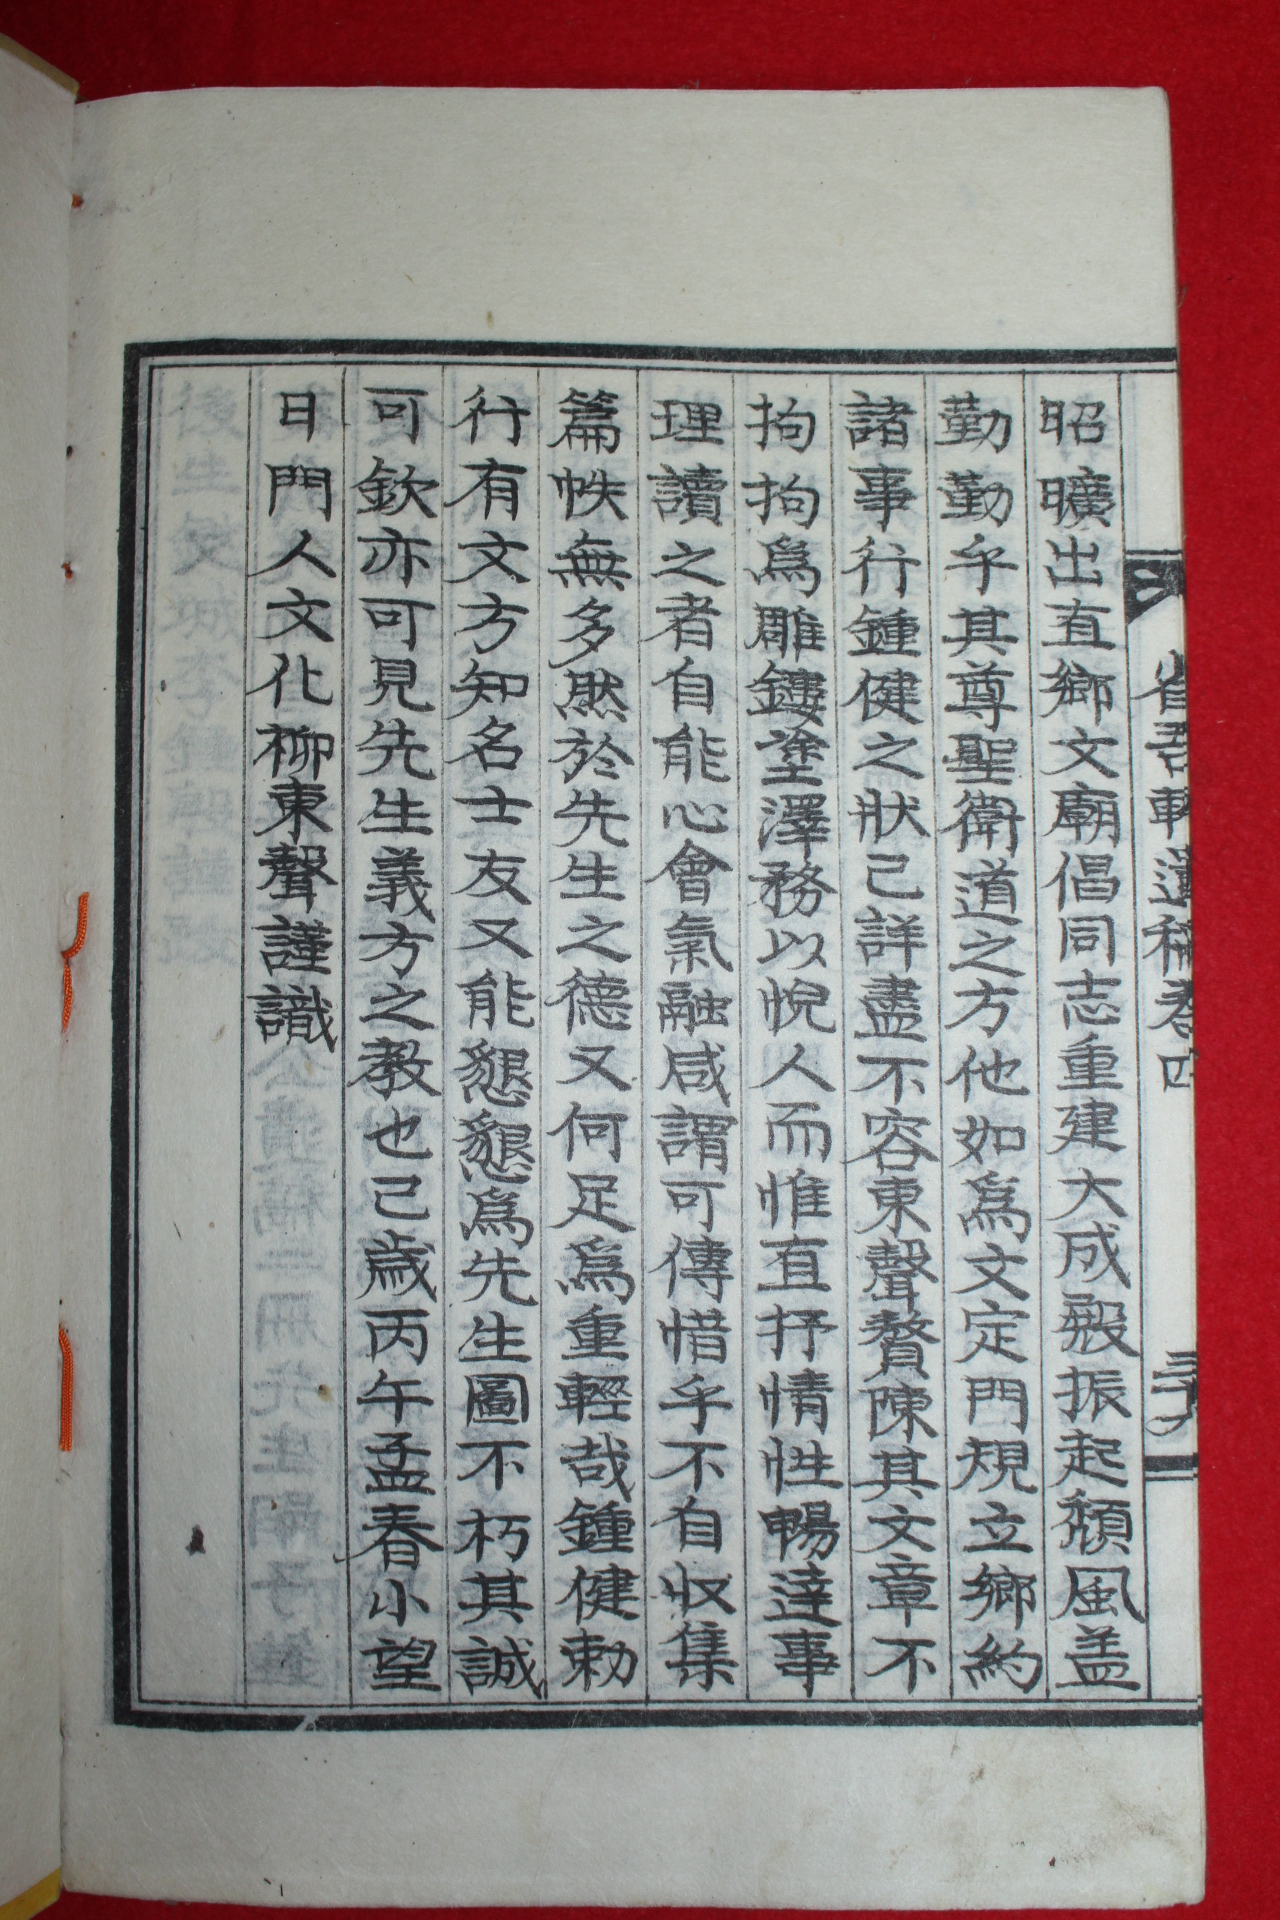 昭曠出直鄉文廟倡同志重建大成殿振起頹風盖
勤勤乎其尊聖衛道之方他如爲文定門規立鄉約
諸事行鍾健之狀己詳盡不容東聲贅陳其文章不
拘拘爲雕鏤塗澤務以悅人而惟直抒情性暢達事
理讀之者自能心會氣融咸謂可傳惜乎不自收集
篇帙無多然於先生之德又何足爲重輕哉鍾健勅
行有文方知名士友又能懇懇爲先生圖不朽其誠
可欽亦可見先生義方之教也己歲丙午孟春小望
日門人文化柳東聲謹識
省吾軒遺稿卷四